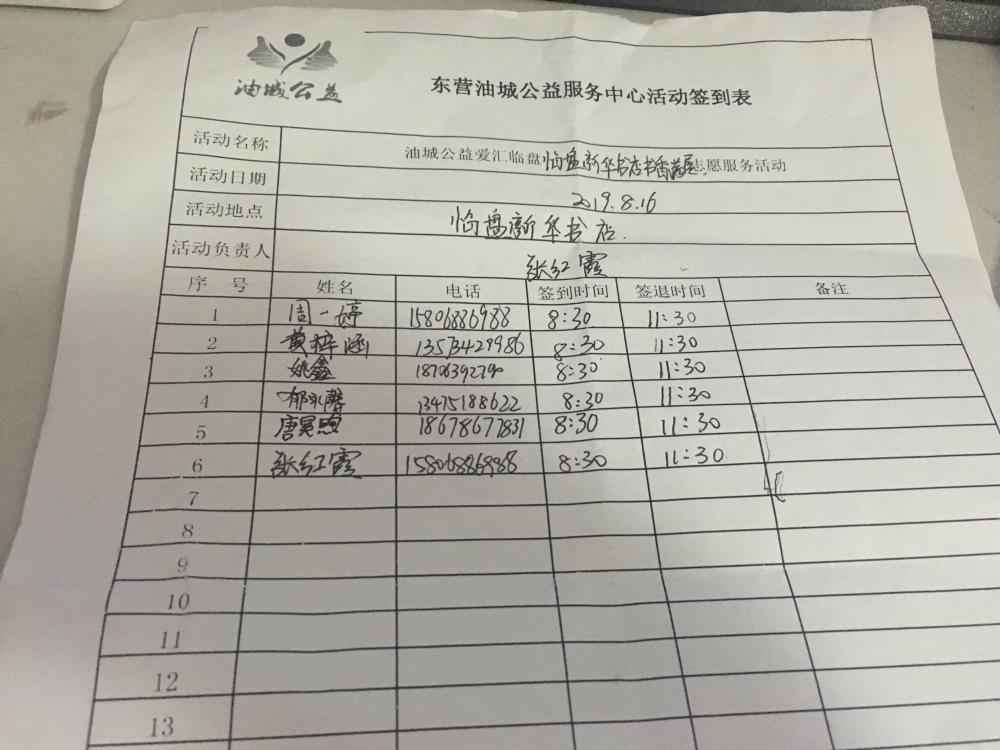 油城公益
东营油城公益服务中心活动签到表
活动名称 油城公益爱汇临盘临盘新华书店书香 志愿服务活动
活动日期 2019.8.16
活动地点 临盘新华书店.
活动负责人 张红霞
序 号 姓名 电话 签到时间 签退时间 备注
1 周一婷 15806886988 8:30 11:30
2 黄梓涵 13573429986 8:30 11:30
3 姚鑫 18706392790 8:30 11:30
4 郁 馨 13475188622 8:30 11:30
5 唐冥煦 18678677831 8:30 11:30
6 张红霞 15806886988 8:30 11:30
7
8
9
10
11
12
13